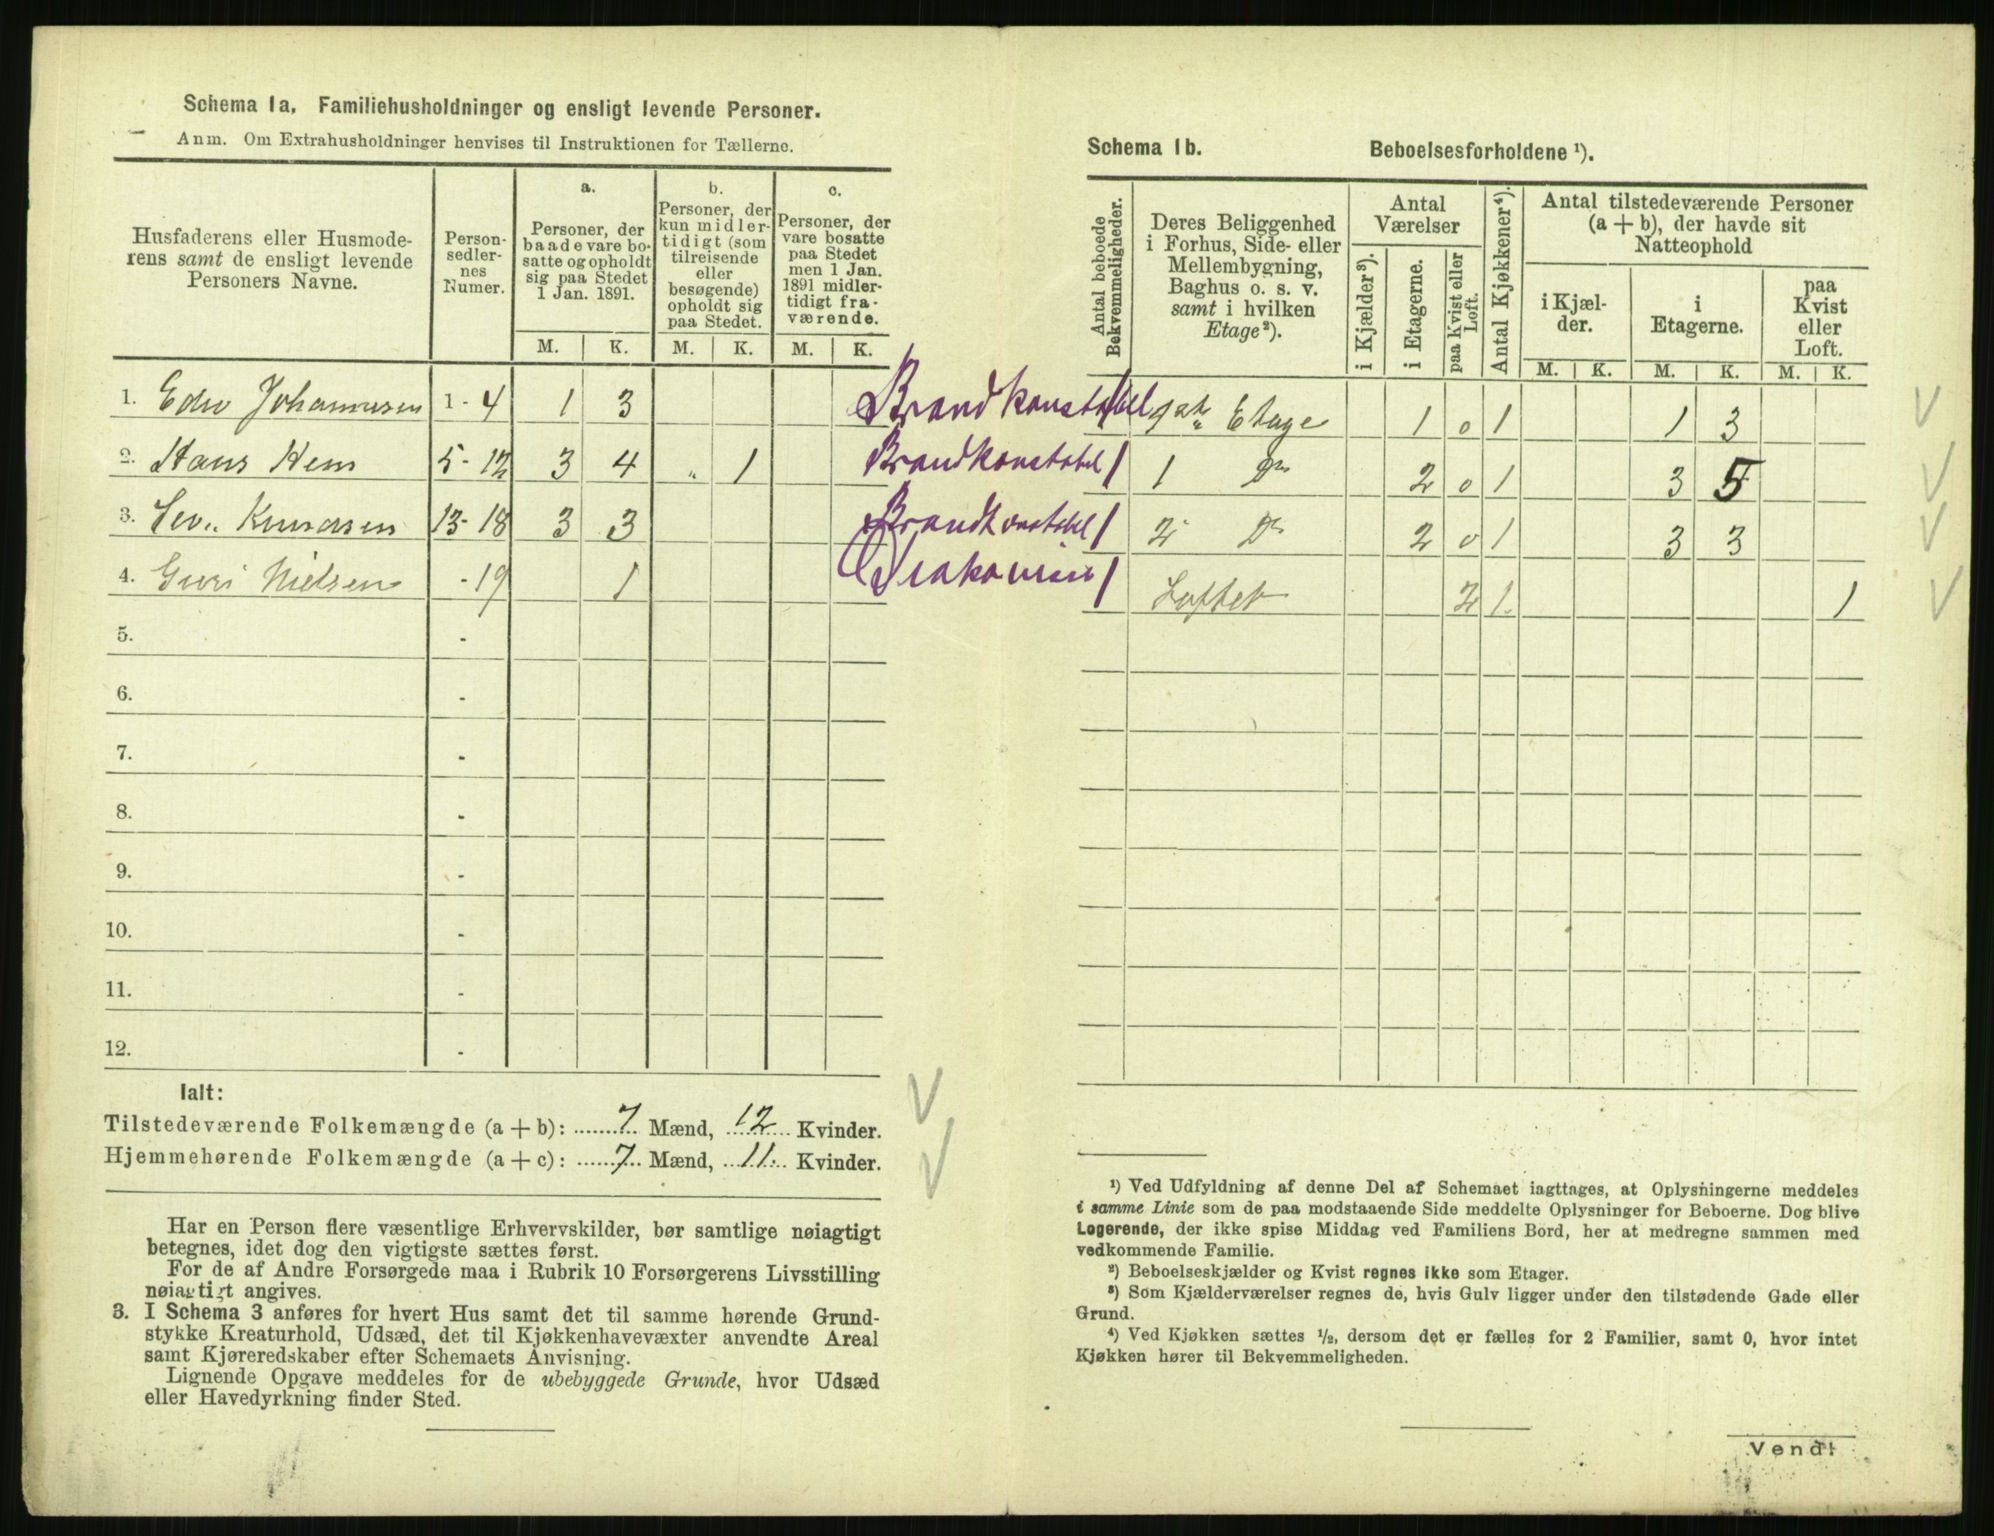 Schema 1a. Familiehusholdninger og ensligt levende Personer.
Anm. Om Extrahusholdninger henvises til Instruktionen for Tællerne.
Husfaderens eller Husmoderens samt de ensligt levende Personers Navne.
Personsedlernes Numer.
a.
Personer, der baade vare bosatte og opholdt sig paa Stedet 1 Jan. 1891.
b.
Personer, der kun midlertidigt (som tilreisende eller besøgende) opholdt sig paa Stedet.
c.
Personer, der vare bosatte paa Stedet men 1 Jan. 1891 midlertidigt fraværende.
M. K. M. K. M. K.
1. Edv Johannesen 1-4 1 3 Brandkonstabel
2. Hans Hem 5-12 3 4 " 1 Brandkonstabel
3. Knudsen 13-18 3 3 Brandkonstabel
4. Guri Nielsen -19 1
5. -
6. -
7. -
8. -
9. -
10. -
11. -
12. -
Ialt:
Tilstedeværende Folkemængde (a + b): 7 Mænd, 12 Kvinder.
Hjemmehørende Folkemængde (a + c): 7 Mænd, 11 Kvinder.
Har en Person flere væsentlige Erhvervskilder, bør samtlige nøiagtigt
betegnes, idet dog den vigtigste sættes først.
For de af Andre Forsørgede maa i Rubrik 10 Forsørgerens Livsstilling
nøiagtigt angives.
3. I Schema 3 anføres for hvert Hus samt det til samme hørende Grund-
stykke Kreaturhold, Udsæd, det til Kjøkkenhavevæxter anvendte Areal
samt Kjøreredskaber efter Schemaets Anvisning.
Lignende Opgave meddeles for de ubebyggede Grunde, hvor Udsæd
eller Havedyrkning finder Sted.
Schema 1b. Beboelsesforholdene ¹).
Antal beboede Bekvemmeligheder.
Deres Beliggenhed i Forhus, Side- eller Mellembygning, Baghus o. s. v. samt i hvilken Etage²).
Antal Værelser
i Kjælder³).
i Etagerne.
paa Kvist eller Loft.
Antal Kjøkkener⁴).
Antal tilstedeværende Personer (a + b), der havde sit Natteophold
i Kjælder.
i Etagerne.
paa Kvist eller Loft.
M. K. M. K. M. K.
1 1ste Etage 1 0 1 1 3
1 1 Do 2 0 1 3 5
1 2 Do 2 0 1 3 3
1 Loftet 2 1 1
¹) Ved Udfyldning af denne Del af Schemaet iagttages, at Oplysningerne meddeles
i samme Linie som de paa modstaaende Side meddelte Oplysninger for Beboerne. Dog blive
Logerende, der ikke spise Middag ved Familiens Bord, her at medregne sammen med
vedkommende Familie.
²) Beboelseskjælder og Kvist regnes ikke som Etager.
³) Som Kjælderværelser regnes de, hvis Gulv ligger under den tilstødende Gade eller
Grund.
⁴) Ved Kjøkken sættes ½, dersom det er fælles for 2 Familier, samt 0, hvor intet
Kjøkken hører til Bekvemmeligheden.
Vend!